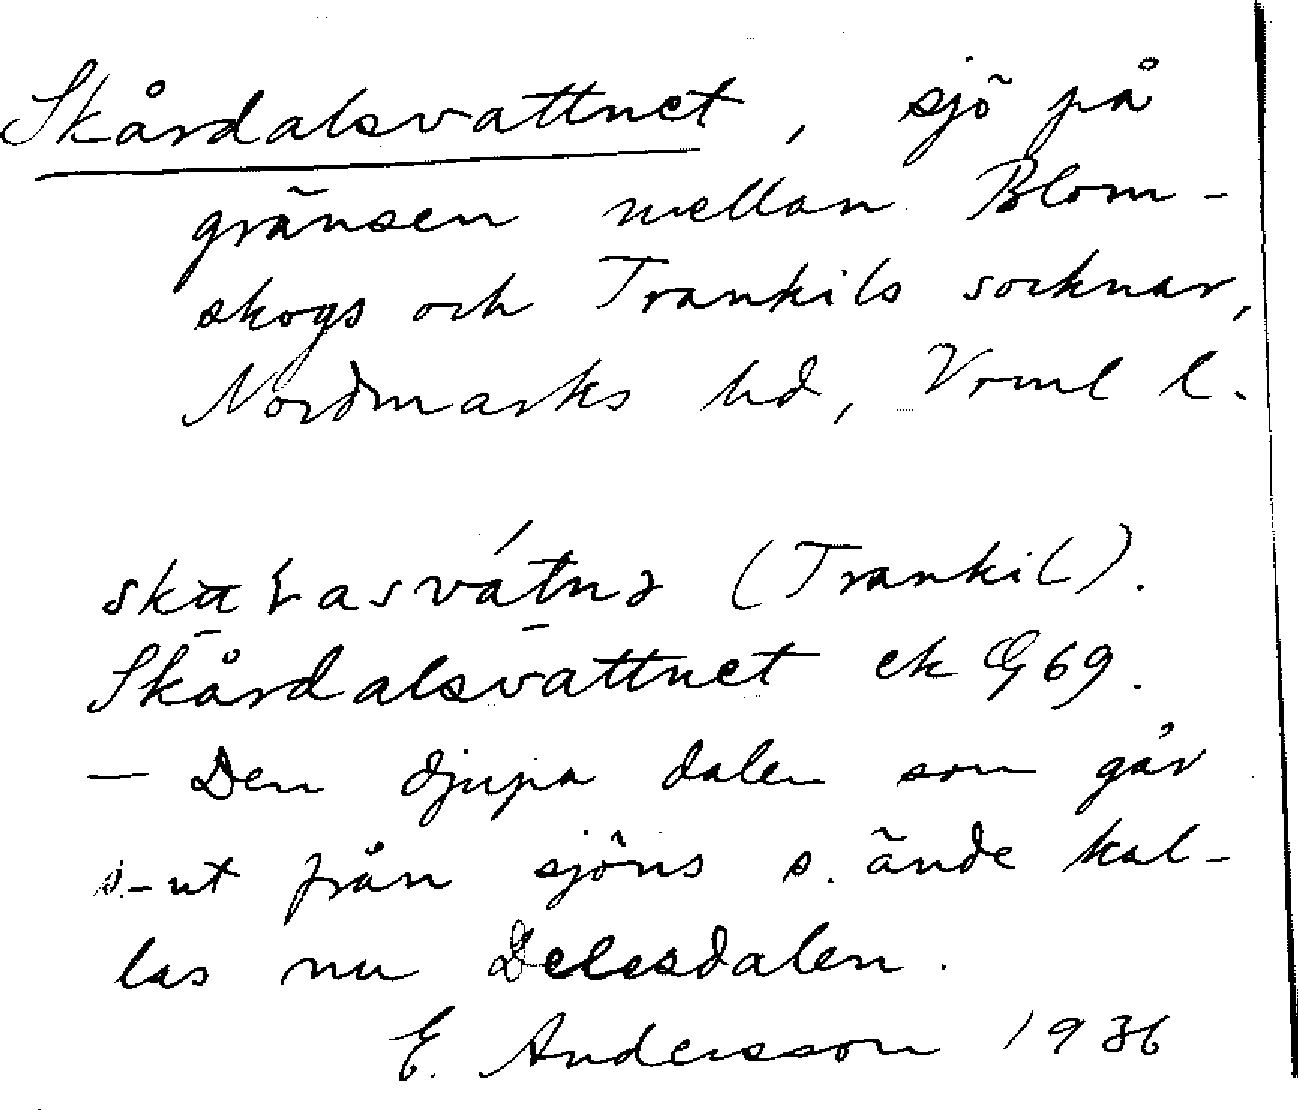 Skårdalsvattnet, sjö på
gränsen mellan Blom-
skogs och Trankils socknar,
Nordmarks hd, Vrml l.
(Trankil).
Skårdalsvattnet ek G69.
— Den djupa dalen som går
s.-ut från sjöns s. ände kal-
las nu Delesdalen.
E. Andersson 1936